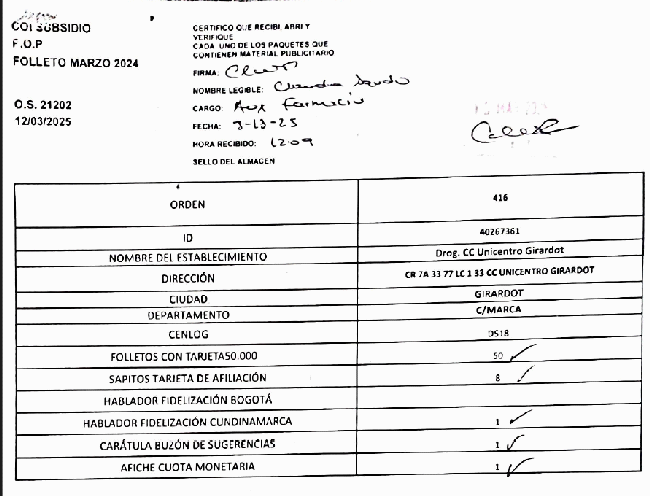 COLSUBSIDIO
F.O.P
FOLLETO MARZO 2024
O.S. 21202
12/03/2025
CERTIFICO QUE RECIBI, ABRI Y
VERIFIQUE
CADA UNO DE LOS PAQUETES QUE
CONTIENEN MATERIAL PUBLICITARIO
FIRMA:
NOMBRE LEGIBLE: Claudia
CARGO: Aux Farmacia
FECHA: 3-13-25
HORA RECIBIDO: 1209
SELLO DEL ALMACEN
ORDEN 416
ID 40267361
NOMBRE DEL ESTABLECIMIENTO Drog. CC Unicentro Girardot
DIRECCIÓN CR 7A 33 77 LC 1 33 CC UNICENTRO GIRARDOT
CIUDAD GIRARDOT
DEPARTAMENTO C/MARCA
CENLOG DS18
FOLLETOS CON TARJETA50.000 50
SAPITOS TARJETA DE AFILIACIÓN 8
HABLADOR FIDELIZACIÓN BOGOTÁ
HABLADOR FIDELIZACIÓN CUNDINAMARCA 1
CARÁTULA BUZÓN DE SUGERENCIAS 1
AFICHE CUOTA MONETARIA 1